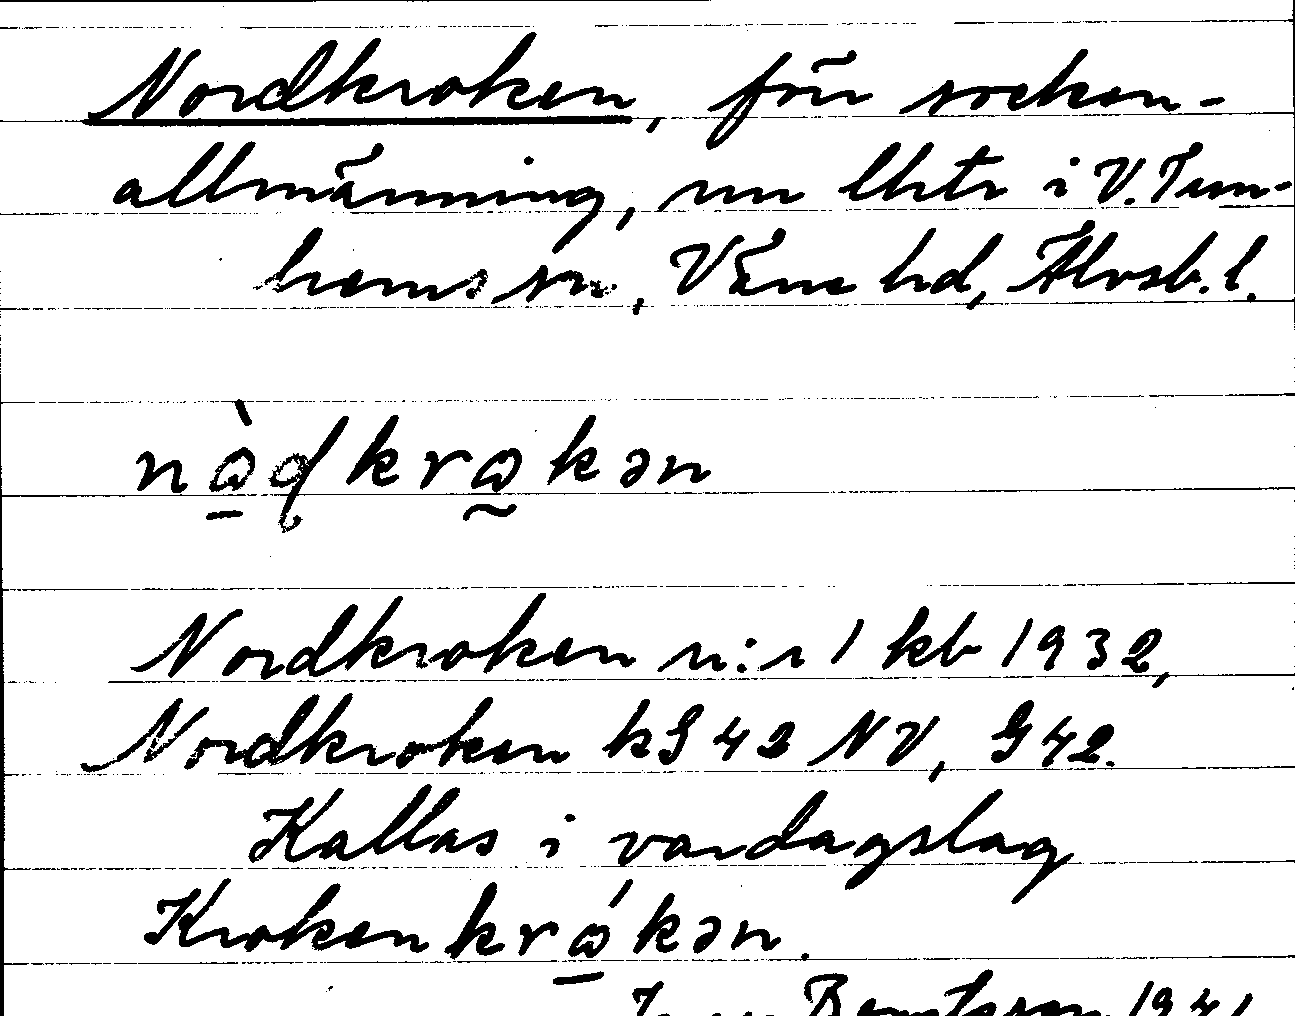 Nordkroken, förr socken-
allmänning, nu lhtr i V. Tun-
hems sn, Väne hd, Älvsb. l.
nὼɖkrωkən
Nordkroken n:r 1 kb 1932,
Nordkroken kS 42 NV, G 42.
Kallas i vardagslag
Kroken krώkən.